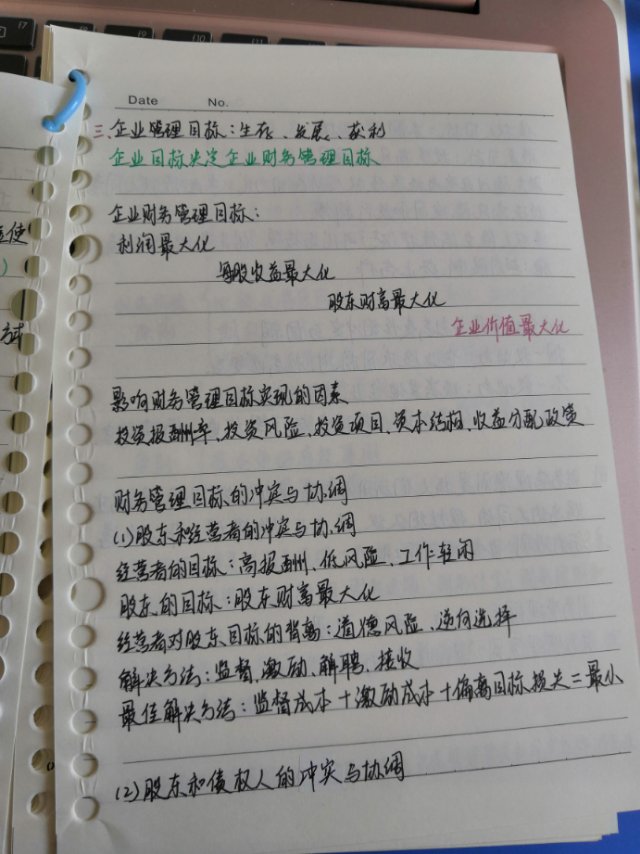 Date No.
三、企业管理目标：生存、发展、获利
企业目标决定企业财务管理目标
企业财务管理目标：
利润最大化
每股收益最大化
股东财富最大化
企业价值最大化
影响财务管理目标实现的因素
投资报酬率、投资风险、投资项目、资本结构、收益分配政策
财务管理目标的冲突与协调
(1)股东和经营者的冲突与协调
经营者的目标：高报酬、低风险、工作轻闲
股东的目标：股东财富最大化
经营者对股东目标的背离：道德风险、逆向选择
解决方法：监督、激励、解聘、接收
最佳解决方法：监督成本+激励成本+偏离目标损失=最小
(2)股东和债权人的冲突与协调
f7
f10
使
)
方式